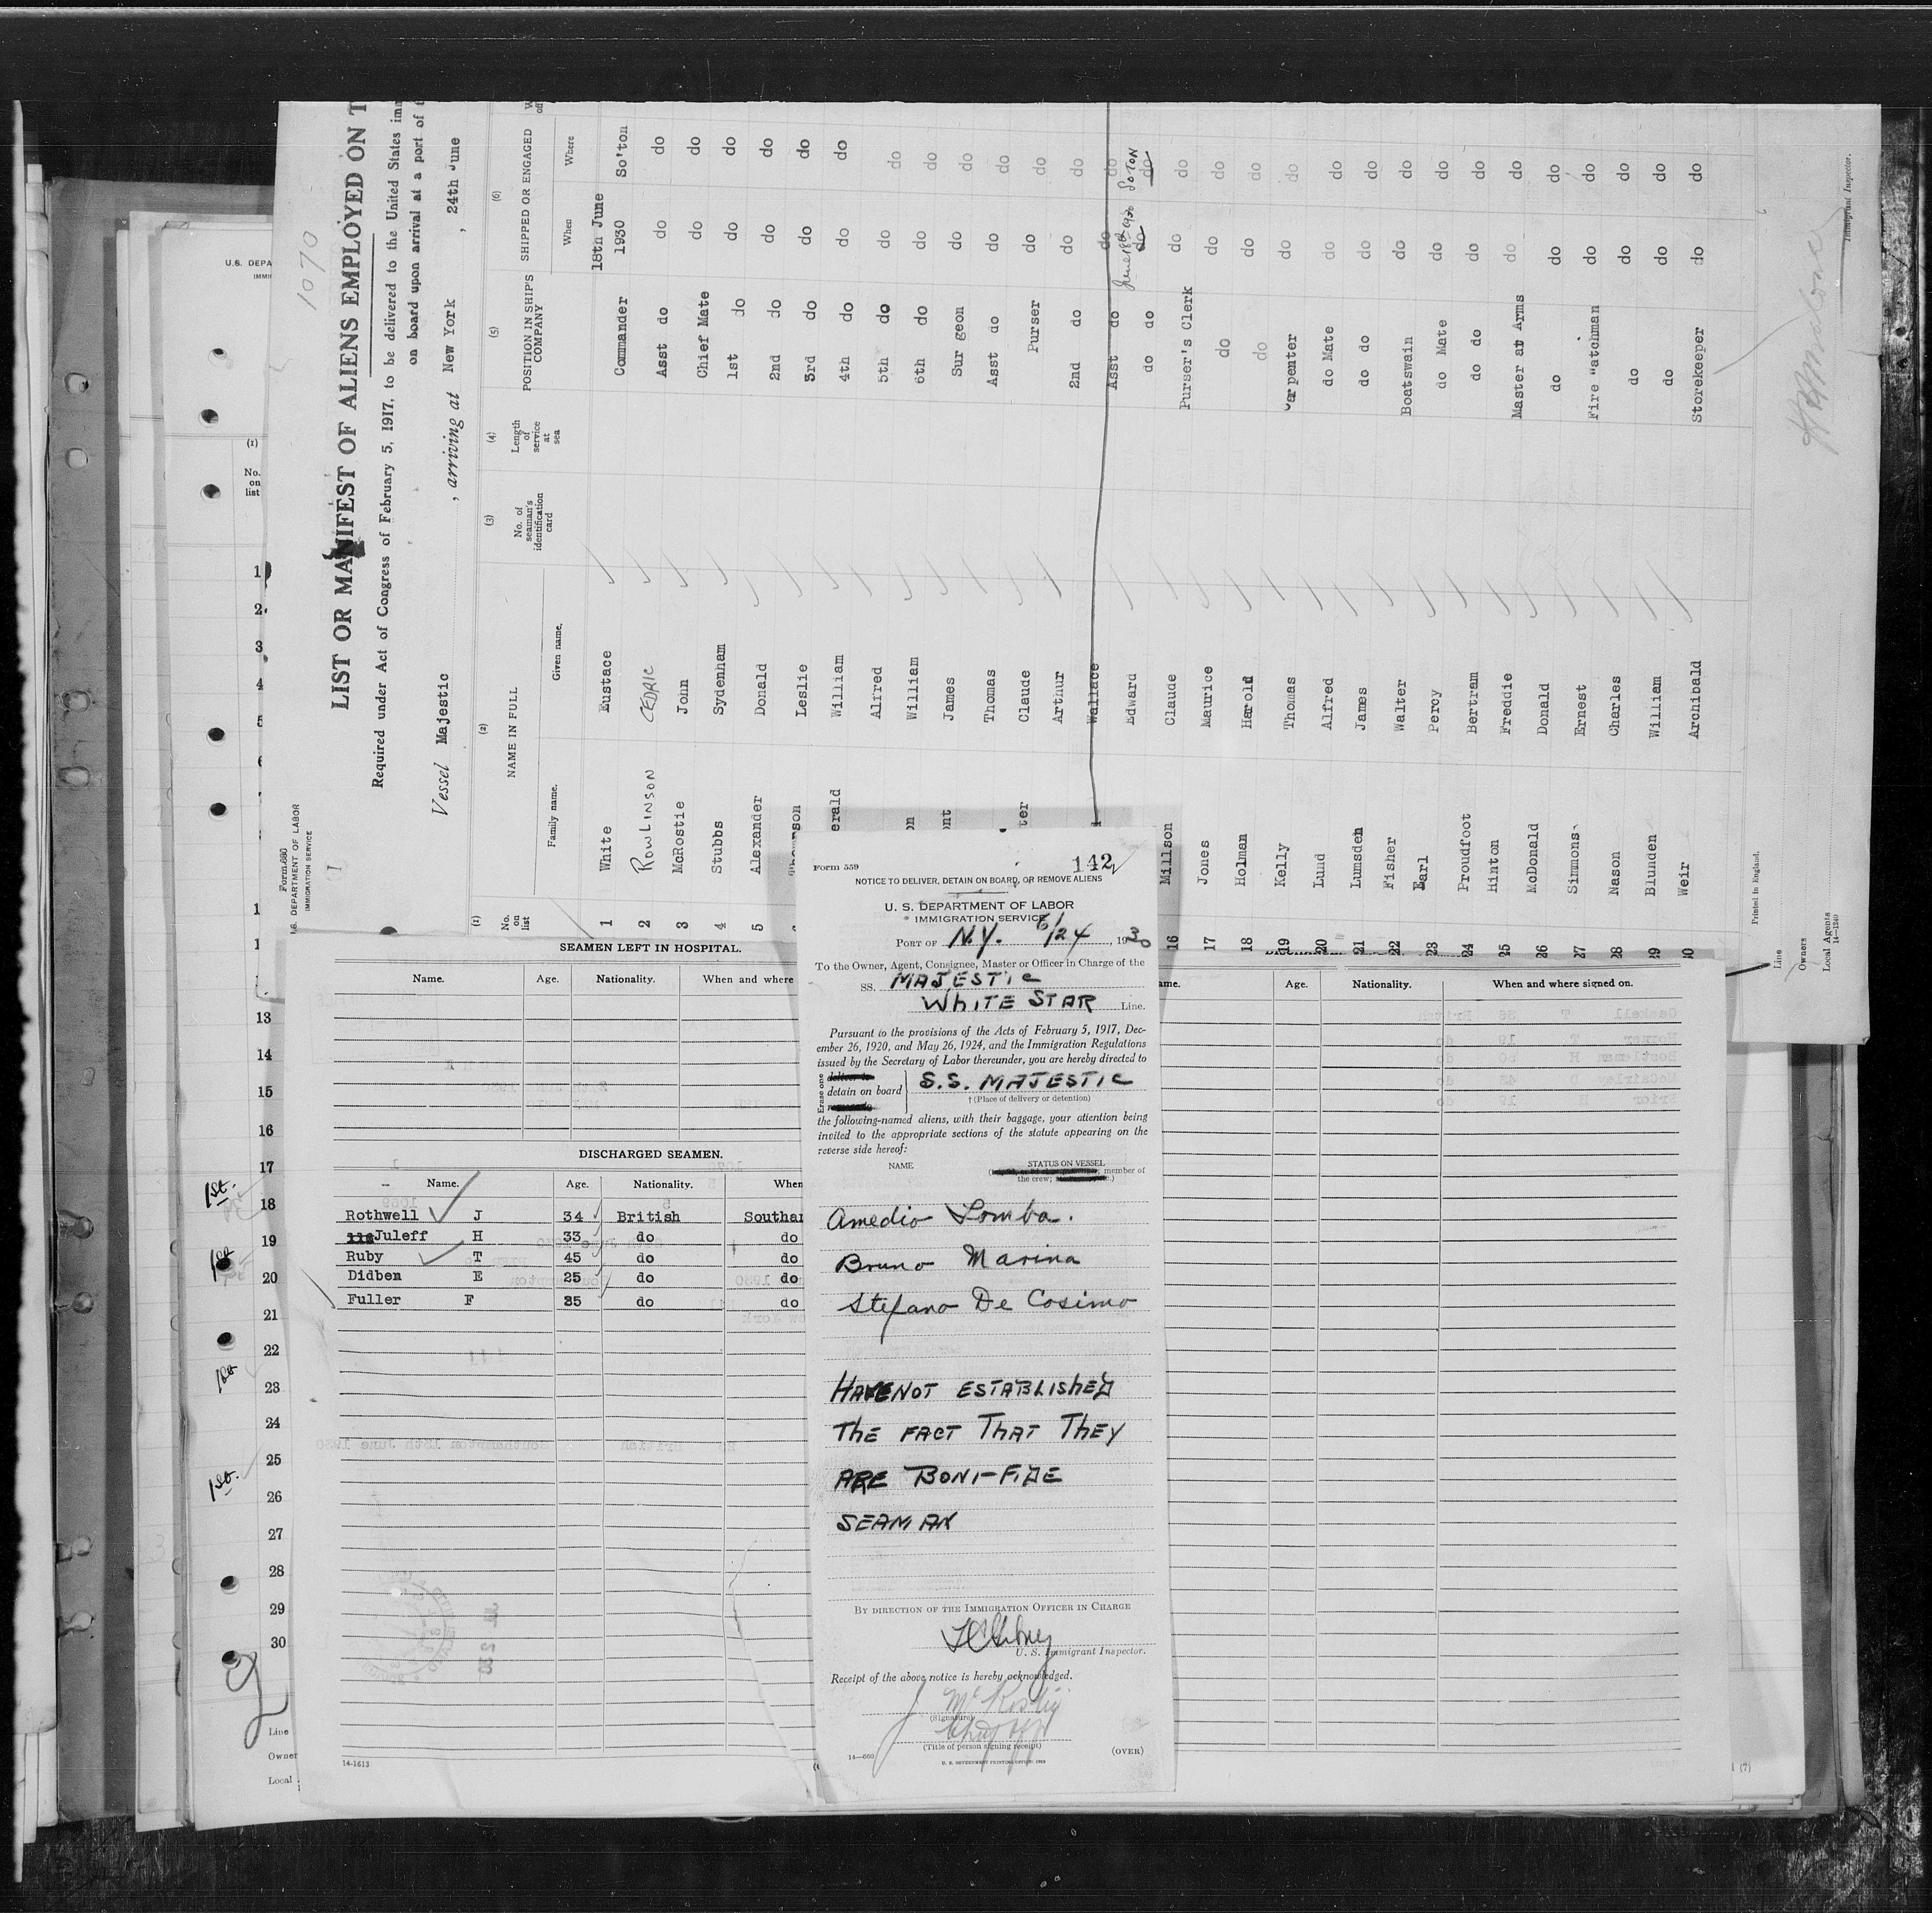 1070
LIST OR MANIFEST OF ALIENS EMPLOYED ON T
Required under Act of Congress of February 5, 1917, to be delivered to the United States imm
on board upon arrival at a port of t
Vessel Majestic , arriving at New York , 24th June
Form 680
U.S. DEPARTMENT OF LABOR
IMMIGRATION SERVICE
(1) (2) (3) (4) (5) (6)
No. on list NAME IN FULL No. of seaman's identification card Length of service at sea POSITION IN SHIP'S COMPANY SHIPPED OR ENGAGED
Family name. Given name. When Where
18th June
1 White Eustace Commander 1930 So'ton
2 ROWLINSON CEDRIC Asst do do do
3 McRostie John Chief Mate do do
4 Stubbs Sydenham 1st do do do
5 Alexander Donald 2nd do do do
Leslie 3rd do do do
erald William 4th do do do
Alfred 5th do do do
on William 6th do do do
ont James Sur geon do do
Thomas Asst do do do
ter Claude Purser do do
Arthur 2nd do do do
Wallace Asst do do do
Edward do do June 18th 1930 SO'TON
16 Millson Claude Purser's Clerk do do
17 Jones Maurice do do do
18 Holman Harold do do do
19 Kelly Thomas Carpenter do do
20 Lund Alfred do Mate do do
21 Lumsden James do do do do
22 Fisher Walter Boatswain do do
23 Earl Percy do Mate do do
24 Proudfoot Bertram do do do do
25 Hinton Freddie Master at Arms do do
26 McDonald Donald do do do
27 Simmons Ernest Fire Watchman do do
28 Nason Charles do do do
29 Blunden William do do do
30 Weir Archibald Storekeeper do do
Printed in England.
Line
Owners
Local Agents
14-1240
Immigrant Inspector.
U.S. DEPA
IMMI
(1)
No. on list
1
2
3
4
5
6
13
14
15
16
17
18
19
20
21
22
23
24
25
26
27
28
29
30
1st.
1st
1st
1st.
Line
Owner
Local
SEAMEN LEFT IN HOSPITAL.
Name. Age. Nationality. When and where
DISCHARGED SEAMEN.
Name. Age. Nationality. When
Rothwell J 34 British Southam
Juleff H 33 do do
Ruby T 45 do do
Didben E 25 do do
Fuller F 25 do do
14-1613
ame. Age. Nationality. When and where signed on.
(7)
Form 559
142
NOTICE TO DELIVER, DETAIN ON BOARD, OR REMOVE ALIENS
U. S. DEPARTMENT OF LABOR
IMMIGRATION SERVICE
PORT OF N.Y. 6/24, 1930
To the Owner, Agent, Consignee, Master or Officer in Charge of the
SS. MAJESTIC
WHITE STAR Line.
Pursuant to the provisions of the Acts of February 5, 1917, Dec-
ember 26, 1920, and May 26, 1924, and the Immigration Regulations
issued by the Secretary of Labor thereunder, you are hereby directed to
Erase one deliver to
detain on board S.S. MAJESTIC
† (Place of delivery or detention)
the following-named aliens, with their baggage, your attention being
invited to the appropriate sections of the statute appearing on the
reverse side hereof:
NAME STATUS ON VESSEL
member of
the crew;
Amedio Lomba.
Bruno Marina
Stefano De Cosimo
HAVE NOT ESTABLISHED
THE FACT THAT THEY
ARE BONI-FIDE
SEAMAN
BY DIRECTION OF THE IMMIGRATION OFFICER IN CHARGE
U. S. Immigrant Inspector.
Receipt of the above notice is hereby acknowledged.
J McRostie
(Signature)
(Title of person signing receipt)
14—660
U. S. GOVERNMENT PRINTING OFFICE
(OVER)